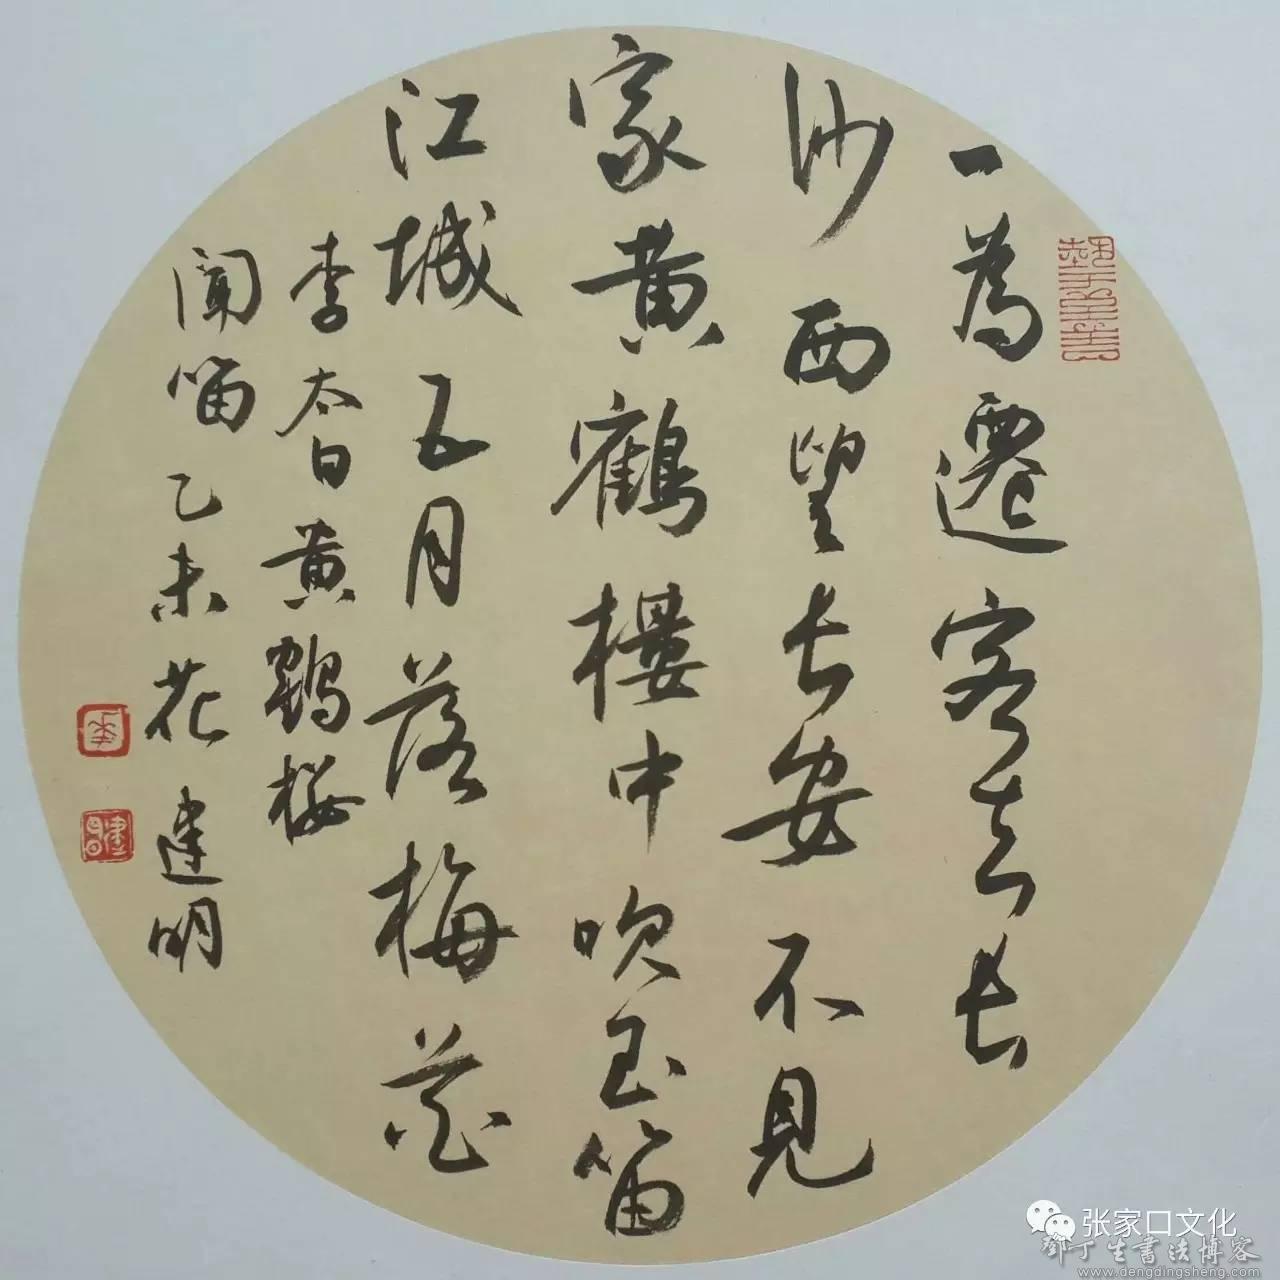 一為遷客去長
沙西望长安不見
家黄鶴樓中吹玉笛
江城五月落梅花
李太白黄鶴楼
闻笛乙未花建明
张家口文化
鄧丁生書法博客
www.dengdingsheng.com